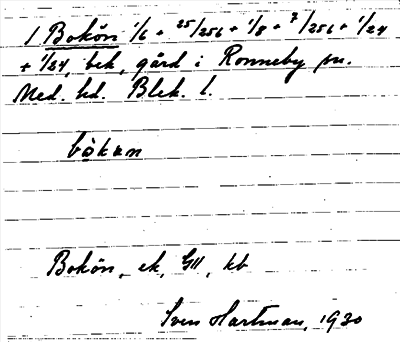 1 Bokön 1/6 + 25/256 + 1/8 + 7/256 + 1/24
+ 1/24, bek, gård i Ronneby sn.
Med. hd. Blek. l.
bökan
Bokön, ek, GII, kb
Sven Hartman, 1930